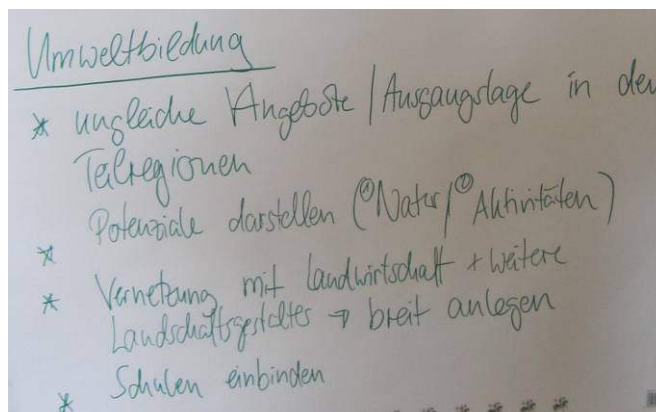 Umweltbildung
* ungleiche Angebote / Ausgangslage in den
Teilregionen
* Potenziale darstellen (①Natur / ②Aktivitäten)
* Vernetzung mit Landwirtschaft + weitere
Landschaftsgestalter → breit anlegen
* Schulen einbinden